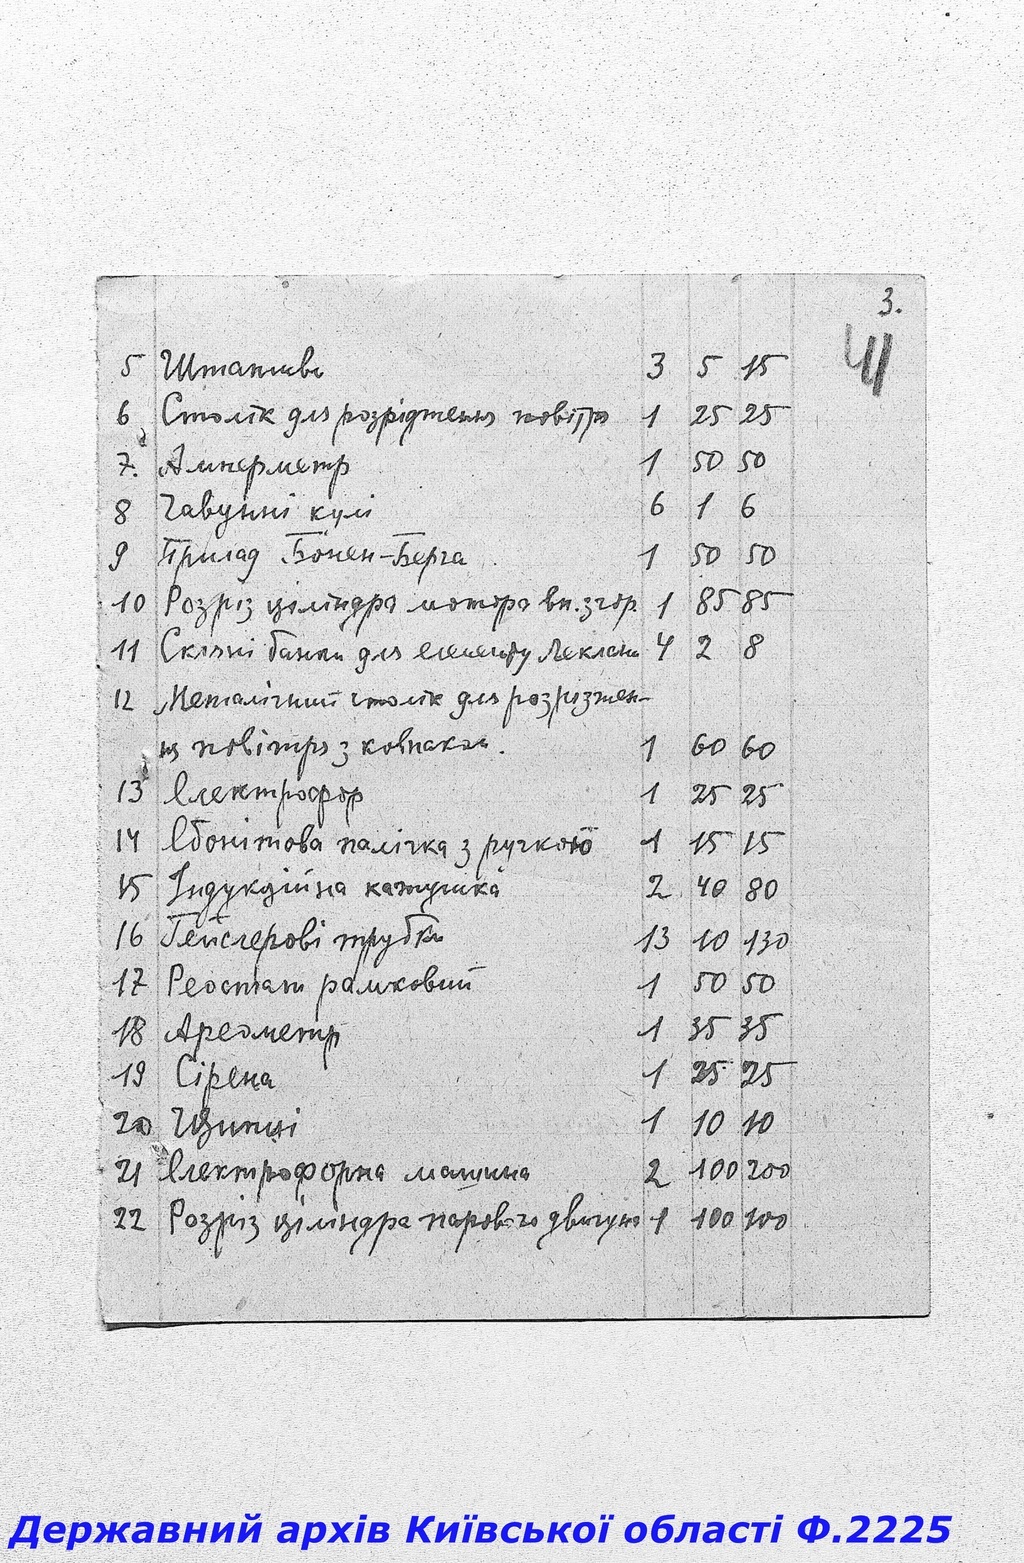 3.
41
5 Штативи 3 5 15
6 Столік для розрідження повітря 1 25 25
7. Амперметр 1 50 50
8 Чавунні кулі 6 1 6
9 Прилад Бонен-Берга 1 50 50
10 Розріз ціліндра мотора вн. згор. 1 85 85
11 Скляні банки для елементу Леклани 4 2 8
12 Металічний столік для розрізжен-
ня повітря з ковпаком. 1 60 60
13 Електрофор 1 25 25
14 Ебонітова палічка з ручкою 1 15 15
15 Індукційна катушка 2 40 80
16 Гейслерові трубки 13 10 130
17 Реостат рамковий 1 50 50
18 Ареометр 1 35 35
19 Сірена 1 25 25
20 Щипці 1 10 10
21 Електрофорна машина 2 100 200
22 Розріз ціліндра парового двигуна 1 100 100
Державний архів Київської області Ф.2225